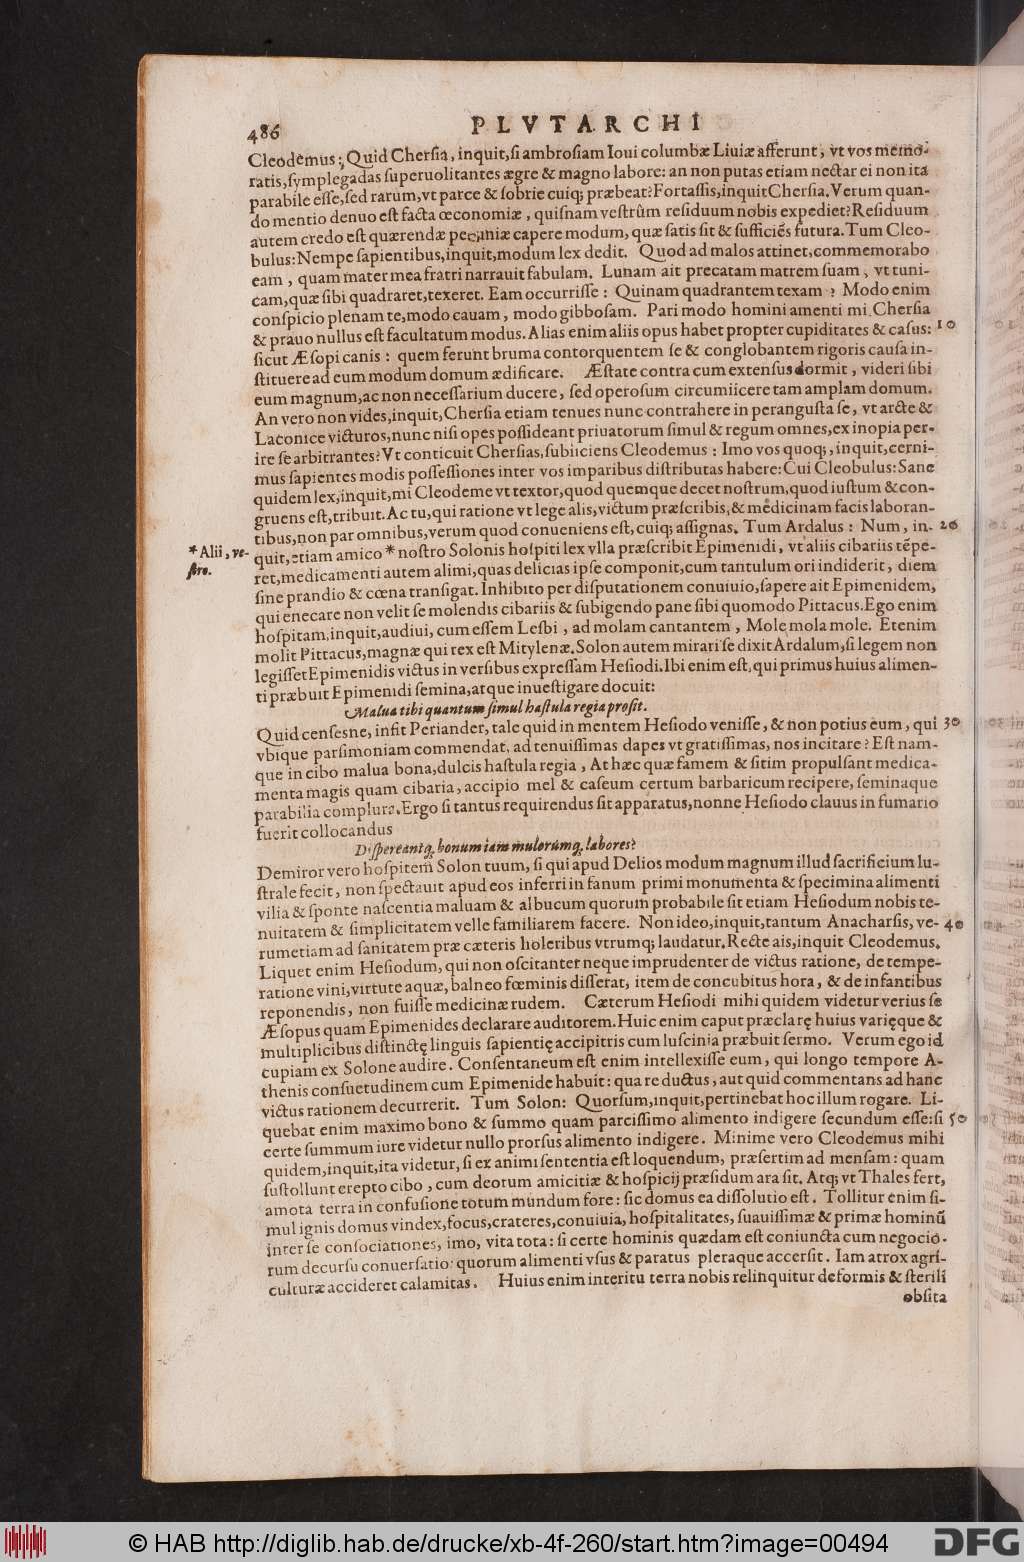 486
PLVTARCHI
Cleodemus: Quid Chersia, inquit, si ambrosiam Ioui columbæ Liuiæ afferunt, vt vos memo-
ratis, symplegadas superuolitantes ægre & magno labore: an non putas etiam nectar ei non ita
parabile esse, sed rarum, vt parce & sobrie cuiq; præbeat? Fortassis, inquit Chersia. Verum quan-
do mentio denuo est facta œconomiæ, quisnam vestrûm residuum nobis expediet? Residuum
autem credo est quærendæ pecuniæ capere modum, quæ satis sit & sufficiẽs futura. Tum Cleo-
bulus: Nempe sapientibus, inquit, modum lex dedit. Quod ad malos attinet, commemorabo
eam, quam mater mea fratri narrauit fabulam. Lunam ait precatam matrem suam, vt tuni-
cam, quæ sibi quadraret, texeret. Eam occurrisse: Quinam quadrantem texam? Modo enim
conspicio plenam te, modo cauam, modo gibbosam. Pari modo homini amenti mi Chersia
& prauo nullus est facultatum modus. Alias enim aliis opus habet propter cupiditates & casus: 10
sicut Æsopi canis: quem ferunt bruma contorquentem se & conglobantem rigoris causa in-
stituere ad eum modum domum ædificare. Æstate contra cum extensus dormit, videri sibi
eum magnum, ac non necessarium ducere, sed operosum circumiicere tam amplam domum.
An vero non vides, inquit, Chersia etiam tenues nunc contrahere in perangusta se, vt arcte &
Laconice victuros, nunc nisi opes possideant priuatorum simul & regum omnes, ex inopia per-
ire se arbitrantes? Vt conticuit Chersias, subiiciens Cleodemus: Imo vos quoq;, inquit, cerni-
mus sapientes modis possessiones inter vos imparibus distributas habere: Cui Cleobulus: Sane
quidem lex, inquit, mi Cleodeme vt textor, quod quemque decet nostrum, quod iustum & con-
gruens est, tribuit. Ac tu, qui ratione vt lege alis, victum præscribis, & medicinam facis laboran-
tibus, non par omnibus, verum quod conueniens est, cuiq; assignas. Tum Ardalus: Num, in- 20
* Alii, ve-
stro.
quit, etiam amico * nostro Solonis hospiti lex vlla præscribit Epimenidi, vt aliis cibariis tẽpe-
ret, medicamenti autem alimi, quas delicias ipse componit, cum tantulum ori indiderit, diem
sine prandio & cœna transigat. Inhibito per disputationem conuiuio, sapere ait Epimenidem,
qui enecare non velit se molendis cibariis & subigendo pane sibi quomodo Pittacus. Ego enim
hospitam, inquit, audiui, cum essem Lesbi, ad molam cantantem, Mole mola mole. Etenim
molit Pittacus, magnæ qui rex est Mitylenæ. Solon autem mirari se dixit Ardalum, si legem non
legisset Epimenidis victus in versibus expressam Hesiodi. Ibi enim est, qui primus huius alimen-
ti præbuit Epimenidi semina, atque inuestigare docuit:
Malua tibi quantum simul hastula regia prosit.
Quid censesne, infit Periander, tale quid in mentem Hesiodo venisse, & non potius eum, qui 30
vbique parsimoniam commendat, ad tenuissimas dapes vt gratissimas, nos incitare? Est nam-
que in cibo malua bona, dulcis hastula regia, At hæc quæ famem & sitim propulsant medica-
menta magis quam cibaria, accipio mel & caseum certum barbaricum recipere, seminaque
parabilia complura. Ergo si tantus requirendus sit apparatus, nonne Hesiodo clauus in fumario
fuerit collocandus
Dispereantq; bonum iam mulorumq; labores?
Demiror vero hospitem Solon tuum, si qui apud Delios modum magnum illud sacrificium lu-
strale fecit, non spectauit apud eos inferri in fanum primi monumenta & specimina alimenti
vilia & sponte nascentia maluam & albucum quorum probabile sit etiam Hesiodum nobis te-
nuitatem & simplicitatem velle familiarem facere. Non ideo, inquit, tantum Anacharsis, ve- 40
rumetiam ad sanitatem præ cæteris holeribus vtrumq; laudatur. Recte ais, inquit Cleodemus.
Liquet enim Hesiodum, qui non oscitanter neque imprudenter de victus ratione, de tempe-
ratione vini, virtute aquæ, balneo fœminis disserat, item de concubitus hora, & de infantibus
reponendis, non fuisse medicinæ rudem. Cæterum Hesiodi mihi quidem videtur verius se
Æsopus quam Epimenides declarare auditorem. Huic enim caput præclarę huius varięque &
multiplicibus distinctę linguis sapientię accipitris cum luscinia præbuit sermo. Verum ego id
cupiam ex Solone audire. Consentaneum est enim intellexisse eum, qui longo tempore A-
thenis consuetudinem cum Epimenide habuit: qua re ductus, aut quid commentans ad hanc
victus rationem decurrerit. Tum Solon: Quorsum, inquit, pertinebat hoc illum rogare. Li-
quebat enim maximo bono & summo quam parcissimo alimento indigere secundum esse: si 50
certe summum iure videtur nullo prorsus alimento indigere. Minime vero Cleodemus mihi
quidem, inquit, ita videtur, si ex animi sententia est loquendum, præsertim ad mensam: quam
sustollunt erepto cibo, cum deorum amicitiæ & hospicij præsidum ara sit. Atq; vt Thales fert,
amota terra in confusione totum mundum fore: sic domus ea dissolutio est. Tollitur enim si-
mul ignis domus vindex, focus, crateres, conuiuia, hospitalitates, suauissimæ & primæ hominũ
inter se consociationes, imo, vita tota: si certe hominis quædam est coniuncta cum negocio-
rum decursu conuersatio: quorum alimenti vsus & paratus pleraque accersit. Iam atrox agri-
culturæ accideret calamitas. Huius enim interitu terra nobis relinquitur deformis & sterili
obsita
© HAB http://diglib.hab.de/drucke/xb-4f-260/start.htm?image=00494
DFG